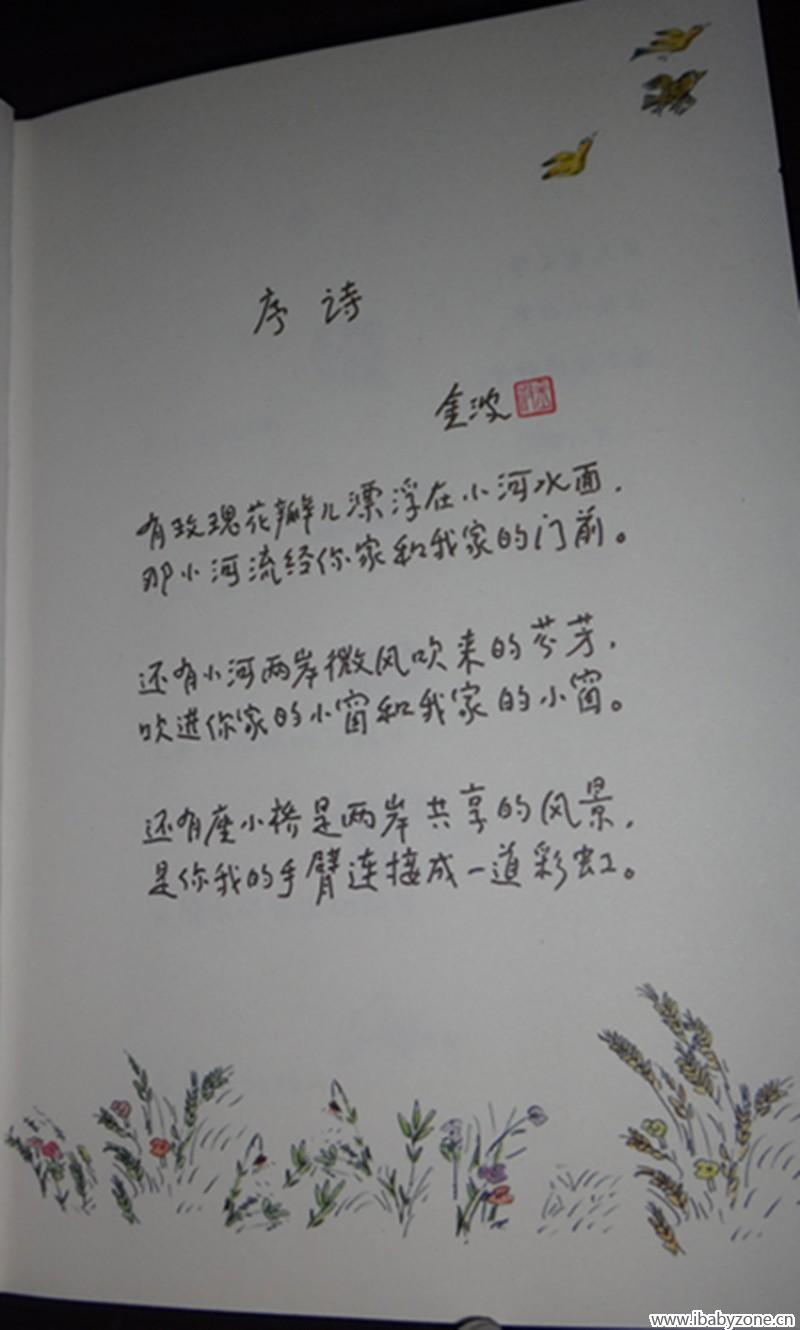 序诗
金波
有玫瑰花瓣儿漂浮在小河水面，
那小河流经你家和我家的门前。
还有小河两岸微风吹来的芬芳，
吹进你家的小窗和我家的小窗。
还有座小桥是两岸共享的风景，
是你我的手臂连接成一道彩虹。
www.ibabyzone.cn